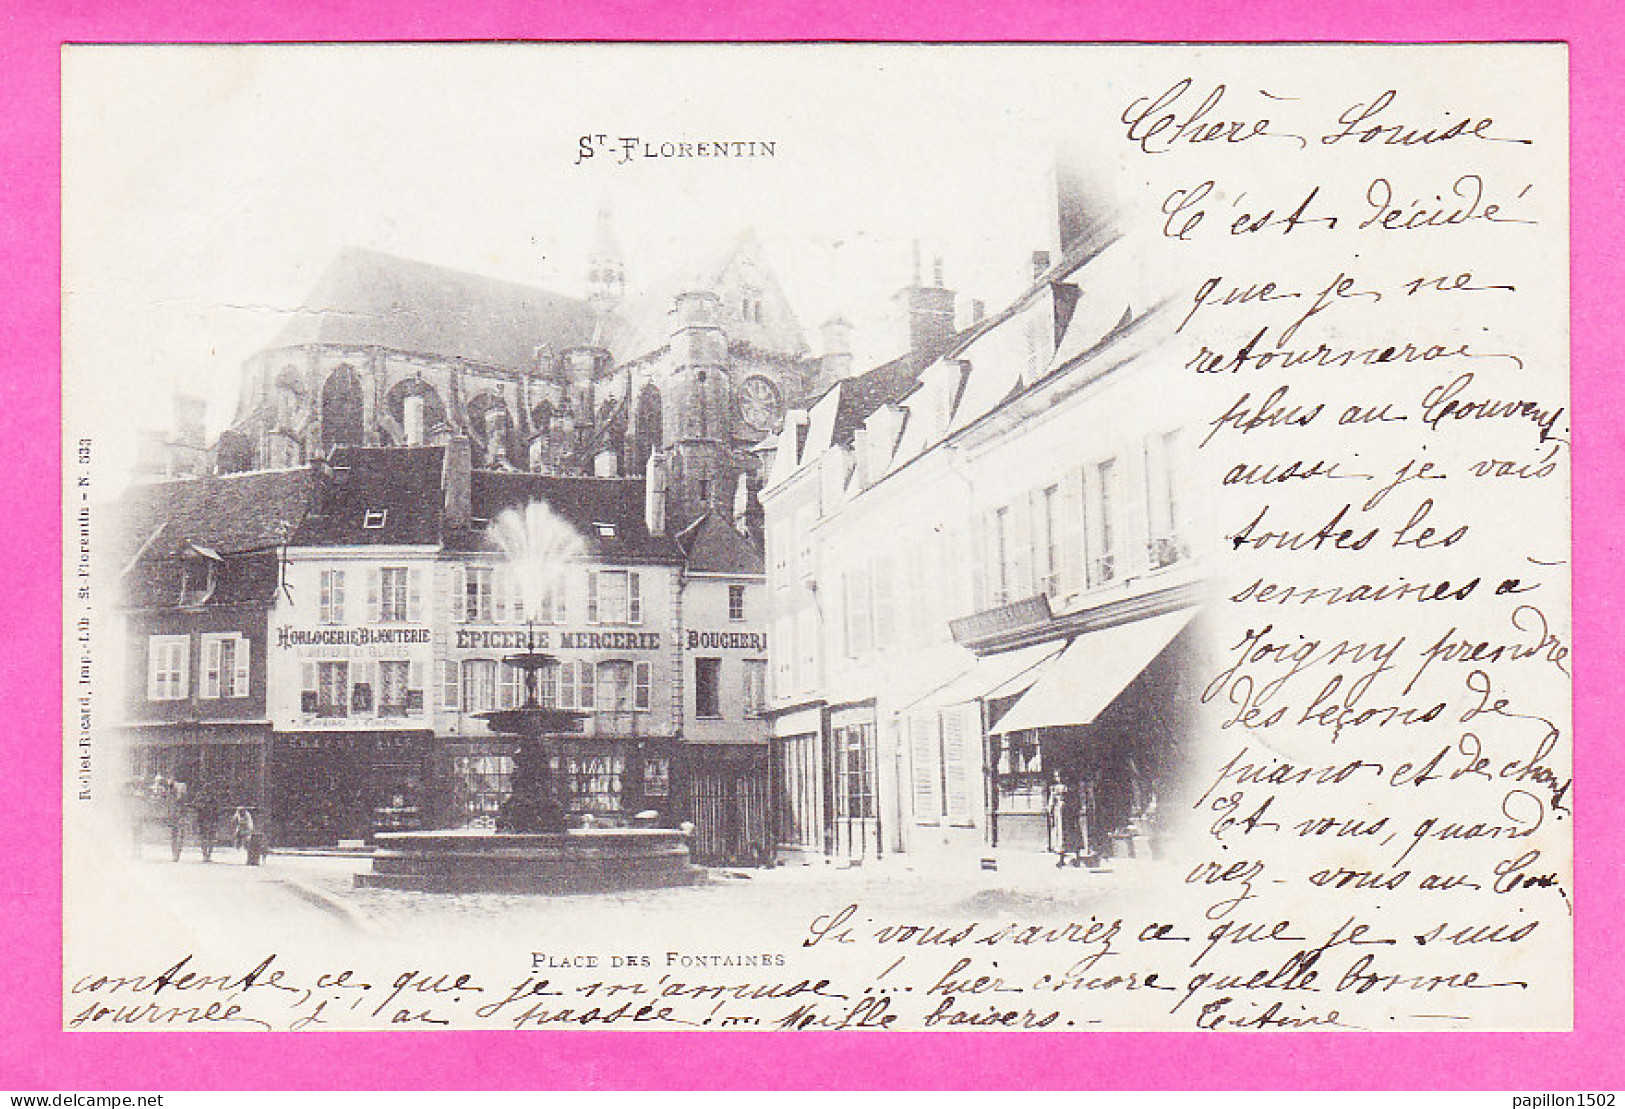 St-Florentin
Chère Louise
C'est décidé
que je ne
retournerai
plus au Couvent
aussi je vais
toutes les
semaines à
Joigny prendre
des leçons de
piano et de chant.
Et vous, quand
irez-vous au Cou--
Si vous saviez ce que je suis
contente, ce que je m'amuse !... hier encore quelle bonne
journée j'ai passée !... Mille baisers. - Titine. -
Place des Fontaines
Horlogerie Bijouterie
Épicerie Mercerie
Boucheri
Rollet-Ricard, Imp.-Lib., St-Florentin - N. 533
papillon1502